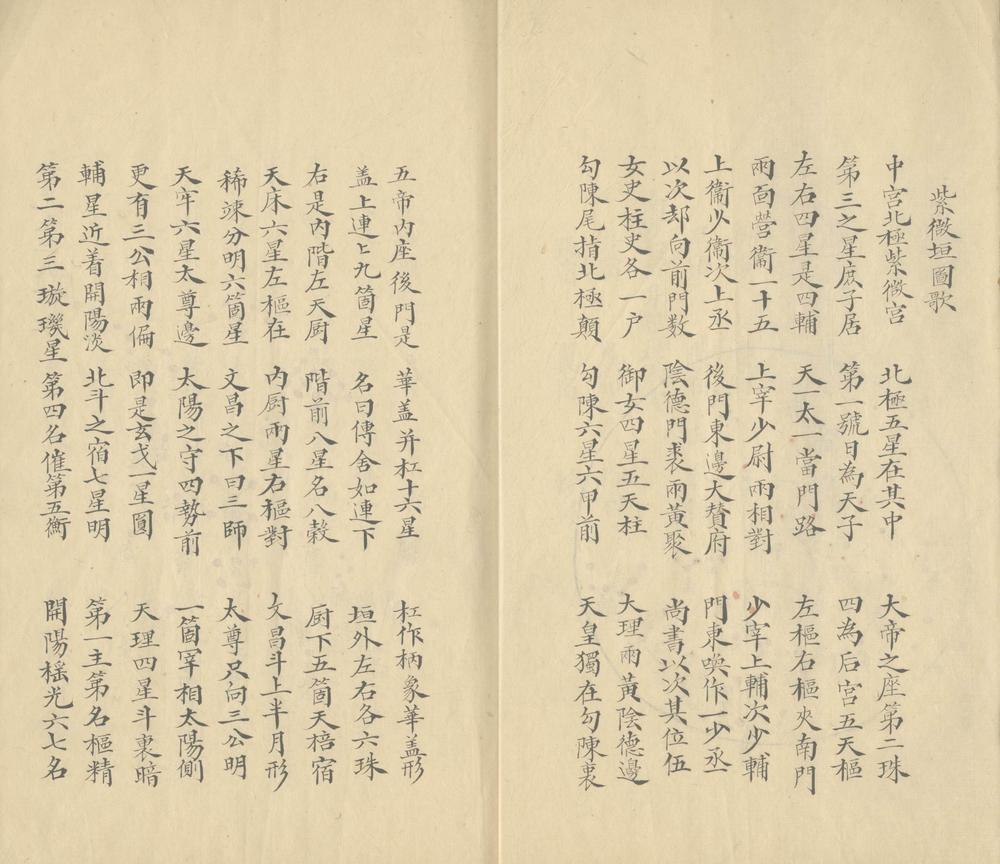 紫微垣圖歌
中宮北極紫微宮 北極五星在其中 大帝之座第二珠
第三之星庶子居 第一號日為天子 四為后宮五天樞
左右四星是四輔 天一太一當門路 左樞右樞夾南門
兩面營衞一十五 上宰少尉兩相對 少宰上輔次少輔
上衞少衞次上丞 後門東邊大賛府 門東喚作一少丞
以次却向前門数 陰德門裹兩黃聚 尚書以次其位伍
女史柱史各一户 御女四星五天柱 大理兩黃陰德邊
勾陳尾指北極顛 勾陳六星六甲前 天皇獨在勾陳裹
五帝内座後門是 華盖并杠十六星 杠作柄象華盖形
盖上連〻九箇星 名曰傳舍如連下 垣外左右各六珠
右是内階左天厨 階前八星名八穀 厨下五箇天棓宿
天床六星左樞在 内厨兩星右樞對 文昌斗上半月形
稀竦分明六箇星 文昌之下曰三師 太尊只向三公明
天牢六星太尊邊 太陽之守四勢前 一箇宰相太陽側
更有三公相兩偏 即是玄戈一星圓 天理四星斗裏暗
輔星近着開陽淡 北斗之宿七星明 第一主第名樞精
第二第三璇璣星 第四名催第五衡 開陽榣光六七名